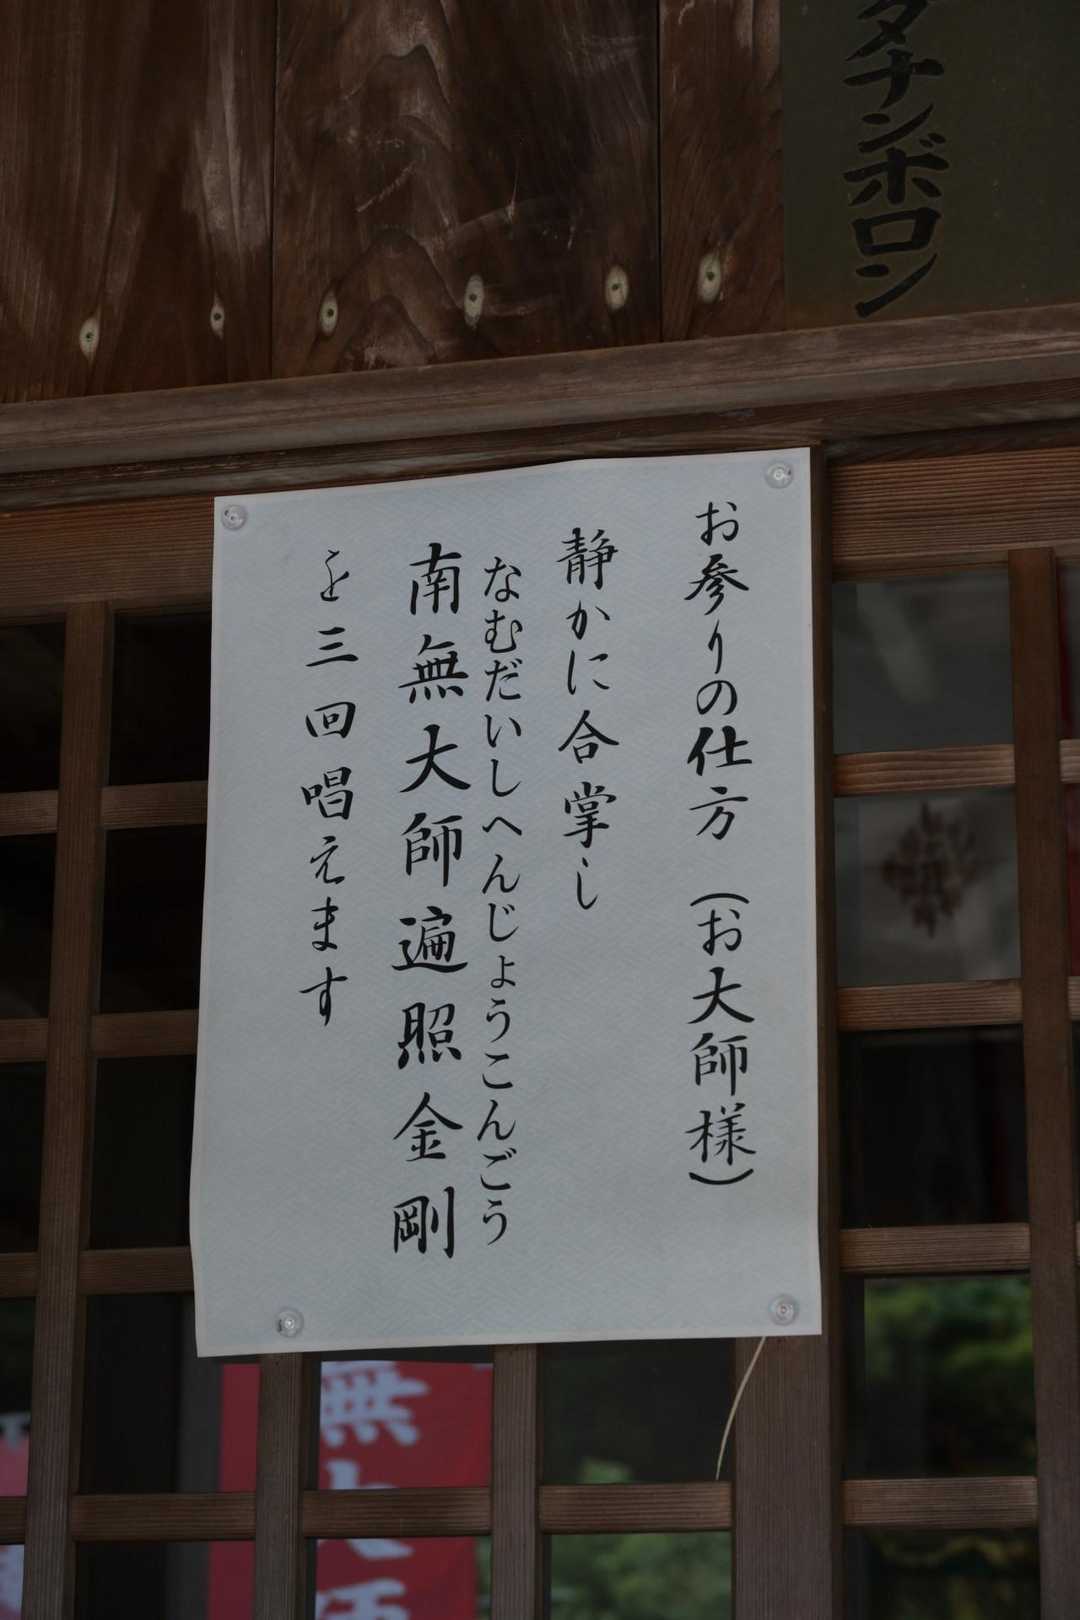 タナンボロン
お参りの仕方（お大師様）
静かに合掌し
なむだいしへんじょうこんごう
南無大師遍照金剛
を三回唱えます
無大師